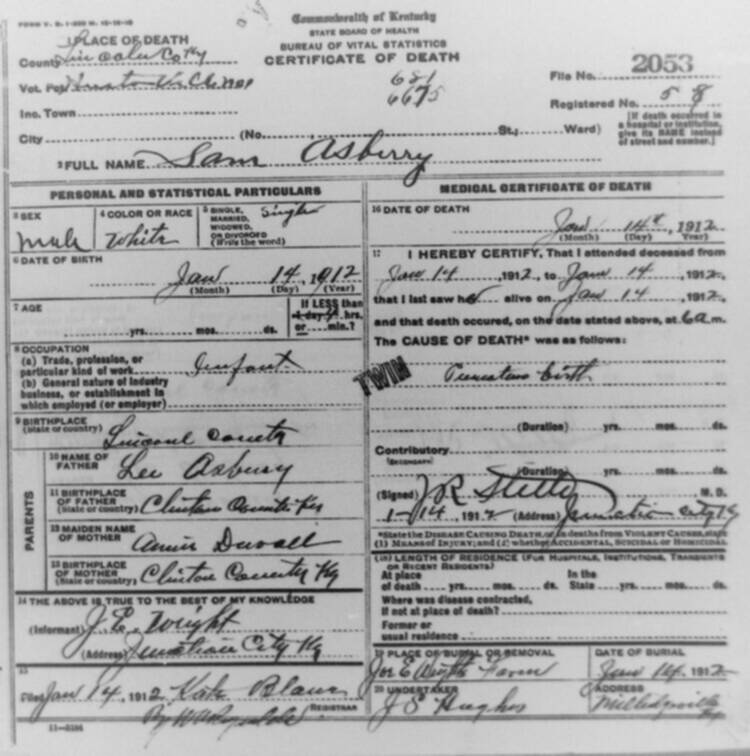 FORM V. S. 1-
Commonwealth of Kentucky
STATE BOARD OF HEALTH
BUREAU OF VITAL STATISTICS
CERTIFICATE OF DEATH
1 PLACE OF DEATH
County Lincoln Co Ky
Vot. Pct.
Inc. Town
City (No. St.; Ward)
File No. 2053
Registered No. 58
[If death occurred in a hospital or institution, give its NAME instead of street and number.]
2 FULL NAME Sam Asberry
PERSONAL AND STATISTICAL PARTICULARS
3 SEX
Male
4 COLOR OR RACE
White
5 SINGLE, MARRIED, WIDOWED, OR DIVORCED (Write the word)
Single
6 DATE OF BIRTH
Jan 14, 1912
(Month) (Day) (Year)
7 AGE
yrs. mos. ds.
If LESS than 1 day hrs. or min.?
8 OCCUPATION
(a) Trade, profession, or
particular kind of work Infant
(b) General nature of industry
business, or establishment in
which employed (or employer)
9 BIRTHPLACE
(State or country) County
PARENTS
10 NAME OF
FATHER Lee Asbury
11 BIRTHPLACE
OF FATHER
(State or country) Clinton County Ky
12 MAIDEN NAME
OF MOTHER Annie Duvall
13 BIRTHPLACE
OF MOTHER
(State or country) Clinton County Ky
14 THE ABOVE IS TRUE TO THE BEST OF MY KNOWLEDGE
(Informant) J. E. Wright
(Address) Junction City Ky
15
Filed Jan 14, 1912 Kate Blain
REGISTRAR
By
11-3184
MEDICAL CERTIFICATE OF DEATH
16 DATE OF DEATH
Jan 14th, 1912
(Month) (Day) (Year)
17 I HEREBY CERTIFY, That I attended deceased from
Jan 14, 1912, to Jan 14, 1912,
that I last saw h alive on Jan 14, 1912,
and that death occured, on the date stated above, at 6 a m.
The CAUSE OF DEATH* was as follows:
TWIN
birth
(Duration) yrs. mos. ds.
Contributory
(SECONDARY)
(Duration) yrs. mos. ds.
(Signed) J R M. D.
1-14, 1912 (Address) Junction City Ky
*State the DISEASE CAUSING DEATH, or in deaths from VIOLENT CAUSES, state
(1) MEANS OF INJURY; and (2) whether ACCIDENTAL, SUICIDAL OR HOMICIDAL
(18) LENGTH OF RESIDENCE (FOR HOSPITALS, INSTITUTIONS, TRANSIENTS
OR RECENT RESIDENTS)
At place In the
of death yrs. mos. ds. State yrs. mos. ds.
Where was disease contracted,
if not at place of death?
Former or
usual residence
19 PLACE OF BURIAL OR REMOVAL
Farm
DATE OF BURIAL
Jan 14, 1912
20 UNDERTAKER
J E Hughes
ADDRESS
Milledgeville Ky